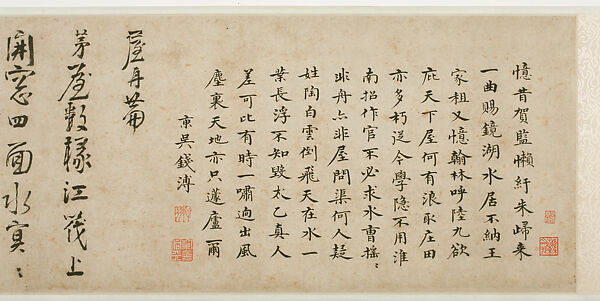 憶昔賀監懶紆朱歸来
一曲賜鏡湖水居不納王
家租又憶翰林呼陸九欲
庇天下屋何有浪取庄田
亦多朽從今學隐不用淮
南招作官不必求水曹搖〻
非舟亦非屋問渠何人
姓陶白雲倒飛天在水一
葉長浮不知毀太乙真人
差可比有時一嘯逈出風
塵裏天地亦只蘧廬一爾
東吳錢溥
屋舟篇
茅屋數椽江上
開窓四面水寅〻